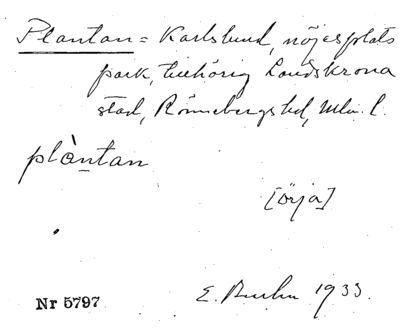 Plantan = Karlslund, nöjesplats
park, tillhörig Landskrona
stad, Rönnebergs hd, Mlm. l.
plàntan
[örja]
E. 1933.
Nr 5797